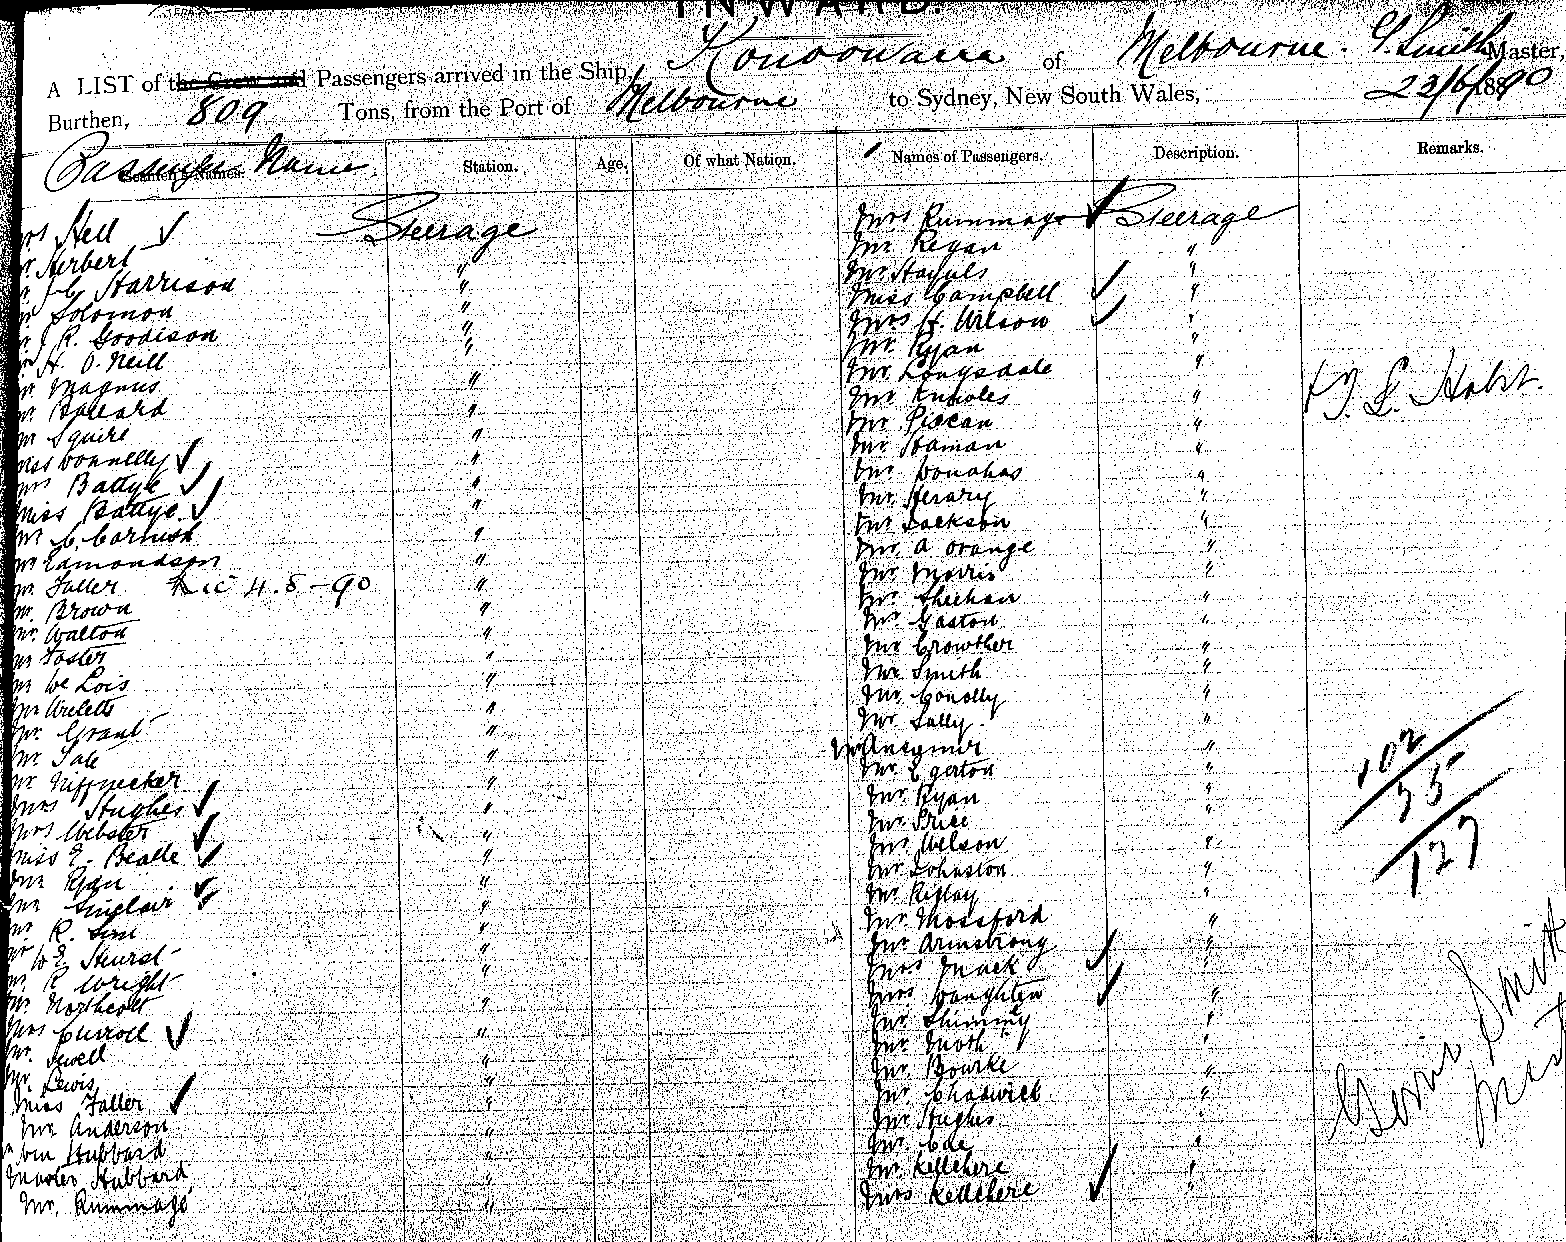 INWARD.
A LIST of the Crew and Passengers arrived in the Ship, Konoowarra of Melbourne. G. Smith Master,
Burthen, 809 Tons, from the Port of Melbourne to Sydney, New South Wales, 23/6/1890
Passengers Name Station. Age. Of what Nation. Names of Passengers. Description. Remarks.
Mrs Hell Steerage
Mr. Herbert "
Mr J.C. Harrison "
Mr Solomon "
Mr J R. Goodison "
Mr H. O. Neill "
Mr. Magnus "
Mr. Ballard "
Mr Squire "
Miss Connelly "
Mrs Battye "
Miss Battye "
Mr C. Cornish "
Mr Edmondson "
Mr. Faller 4.8-90 "
Mr. Brown "
Mr. Walton "
Mr Foster "
Mr De Lois "
Mr
Mr. Grant "
Mr. Tate "
Mr "
Mrs Hughes "
Mrs Webster "
Miss E. Beadle "
Mr Ryan "
Mr Sinclair "
Mr. R. Sim "
Mr W E. Hurst "
Mr R Wright "
Mr. Northcott "
Mrs Curroll "
Mr. Jewell "
Mr. Lewis "
Miss Faller "
Mr Anderson "
Wm Hubbard "
Master Hubbard "
Mr. Rummage "
Mrs Rummage Steerage
Mr Regan "
Mr "
Miss Campbell "
Mrs H. Wilson "
Mr. Ryan "
Mr. Longsdale "
Mr Knholes "
Mr Piocan "
Mr Haman "
Mr Donahas "
Mr. Henry "
Mr Jackson "
Mr. A Orange "
Mr Morris "
Mr. Sheehan "
Mr Gaston "
Mr Crowther "
Mr Smith "
Mr. Conolly "
Mr Lally "
Mr "
Mr. Egerton "
Mr. Ryan "
Mr Price
Mr Wilson "
Mr Johnston "
Mr Ripley "
Mr. Mossford "
Mr Armstrong "
Mrs Mack "
Mrs Daughten "
Mr "
Mr Moth "
Mr Bourke "
Mr Chadwick "
Mr Hughes
Mr. Coe "
Mr Kellehere "
Mrs Kellehere "
102
55
127
Smith